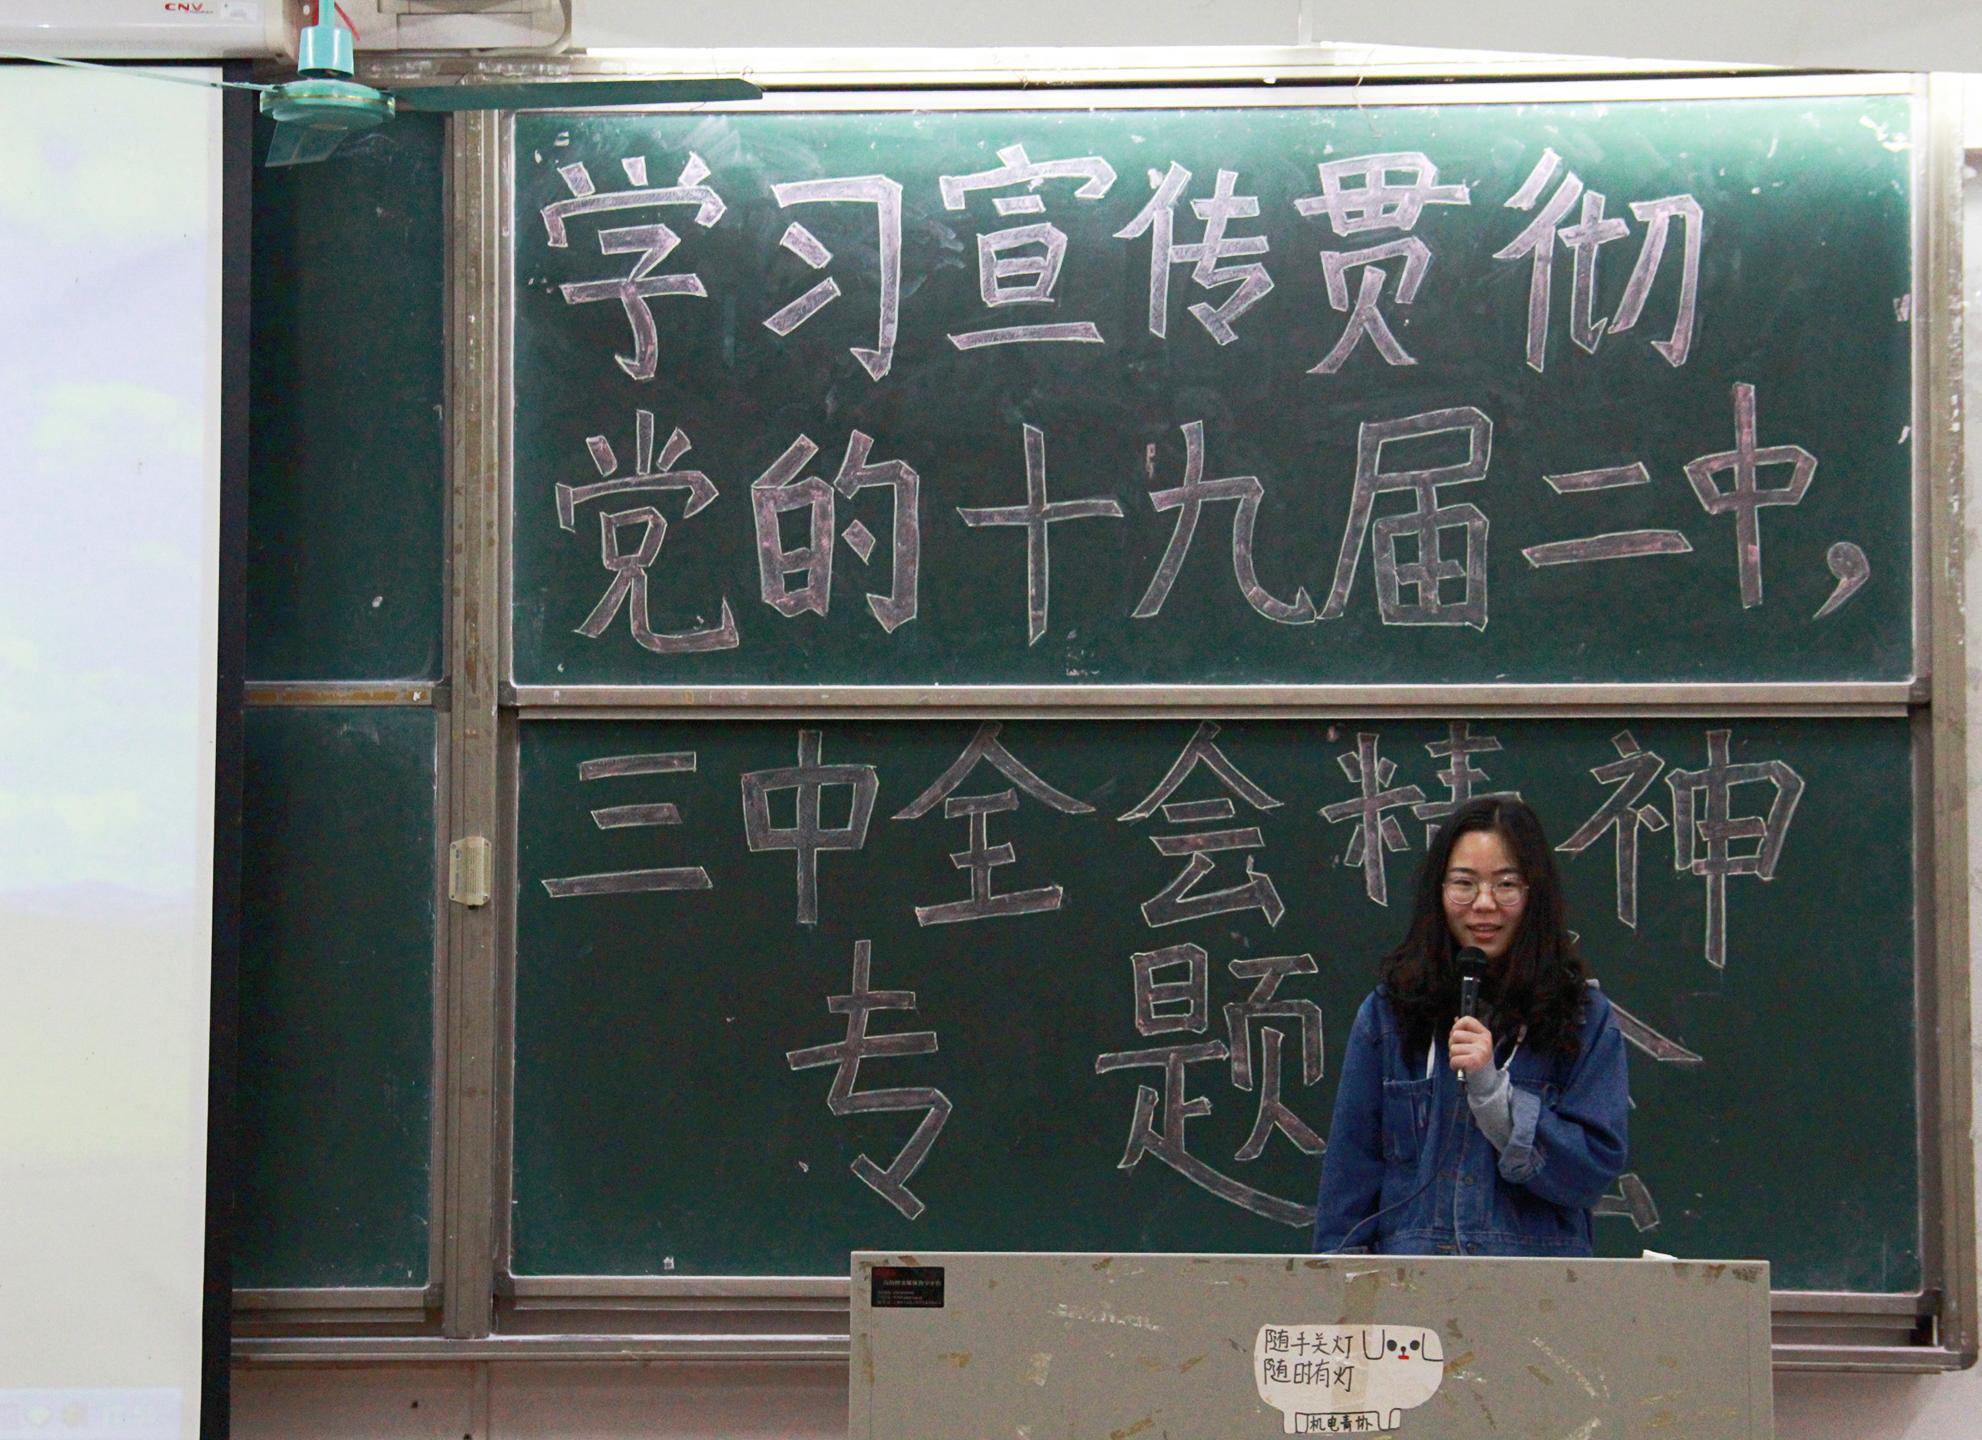 CNV
学习宣传贯彻
党的十九届二中,
三中全会精神
专题会
随手关灯
随时有灯
机电青协